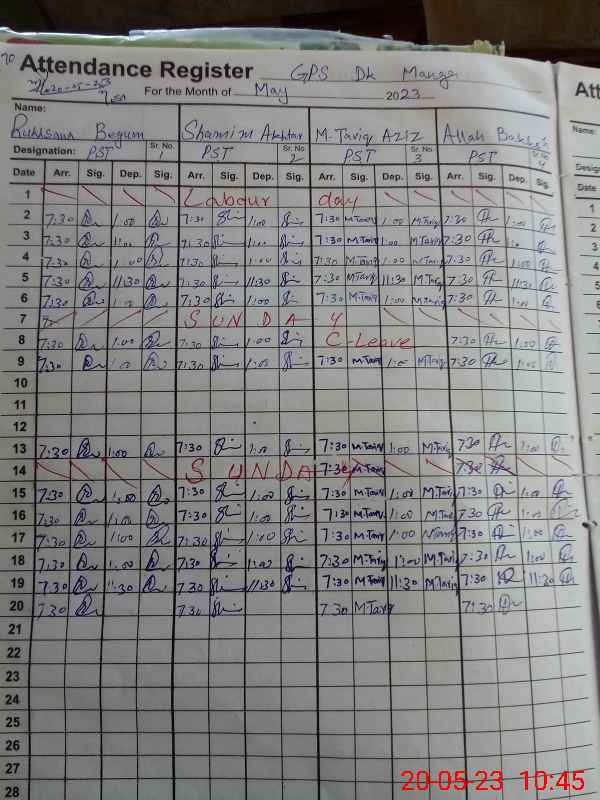 Attendance Register GPS Dk Manga
For the Month of May 2023
Name:
Rukhsana Begum Shamim Akhtar M. Tariq Aziz Allah Bakhsh
Designation: PST Sr. No. 1 PST Sr. No. 2 PST Sr. No. 3 PST Sr. No. 4
Date Arr. Sig. Dep. Sig. Arr. Sig. Dep. Sig. Arr. Sig. Dep. Sig. Arr. Sig. Dep. Sig.
1 Labour day
2 7:30 1:00 7:30 1:00 7:30 M.Tariq 1:00 M.Tariq 7:30 1:00
3 7:30 1:00 7:30 1:00 7:30 M.Tariq 1:00 M.Tariq 7:30
4 7:30 1:00 7:30 1:00 7:30 M.Tariq 1:00 M.Tariq 7:30 1:00
5 7:30 11:30 7:30 11:30 7:30 M.Tariq 11:30 M.Tariq 7:30 11:30
6 7:30 1:00 7:30 1:00 7:30 M.Tariq 1:00 M.Tariq 7:30 1:00
7 SUNDAY
8 7:30 1:00 7:30 1:00 C-Leave 7:30 1:00
9 7:30 1:00 7:30 1:00 7:30 M.Tariq 1:00 M.Tariq 7:30 1:00
10
11
12
13 7:30 1:00 7:30 1:00 7:30 M.Tariq 1:00 M.Tariq 7:30 1:00
14 SUNDAY 7:30 M.Tariq 7:30
15 7:30 1:00 7:30 1:00 7:30 M.Tariq 1:00 M.Tariq 7:30 1:00
16 7:30 1:00 7:30 1:00 7:30 M.Tariq 1:00 M.Tariq 7:30 1:00
17 7:30 1:00 7:30 1:00 7:30 M.Tariq 1:00 M.Tariq 7:30 1:00
18 7:30 1:00 7:30 1:00 7:30 M.Tariq 1:00 M.Tariq 7:30 1:00
19 7:30 11:30 7:30 11:30 7:30 M.Tariq 11:30 M.Tariq 7:30 11:30
20 7:30 7:30 7:30 M.Tariq 7:30
21
22
23
24
25
26
27
28
20-05-23 10:45
Att
Name:
Date
1
2
3
4
5
6
7
8
9
10
11
12